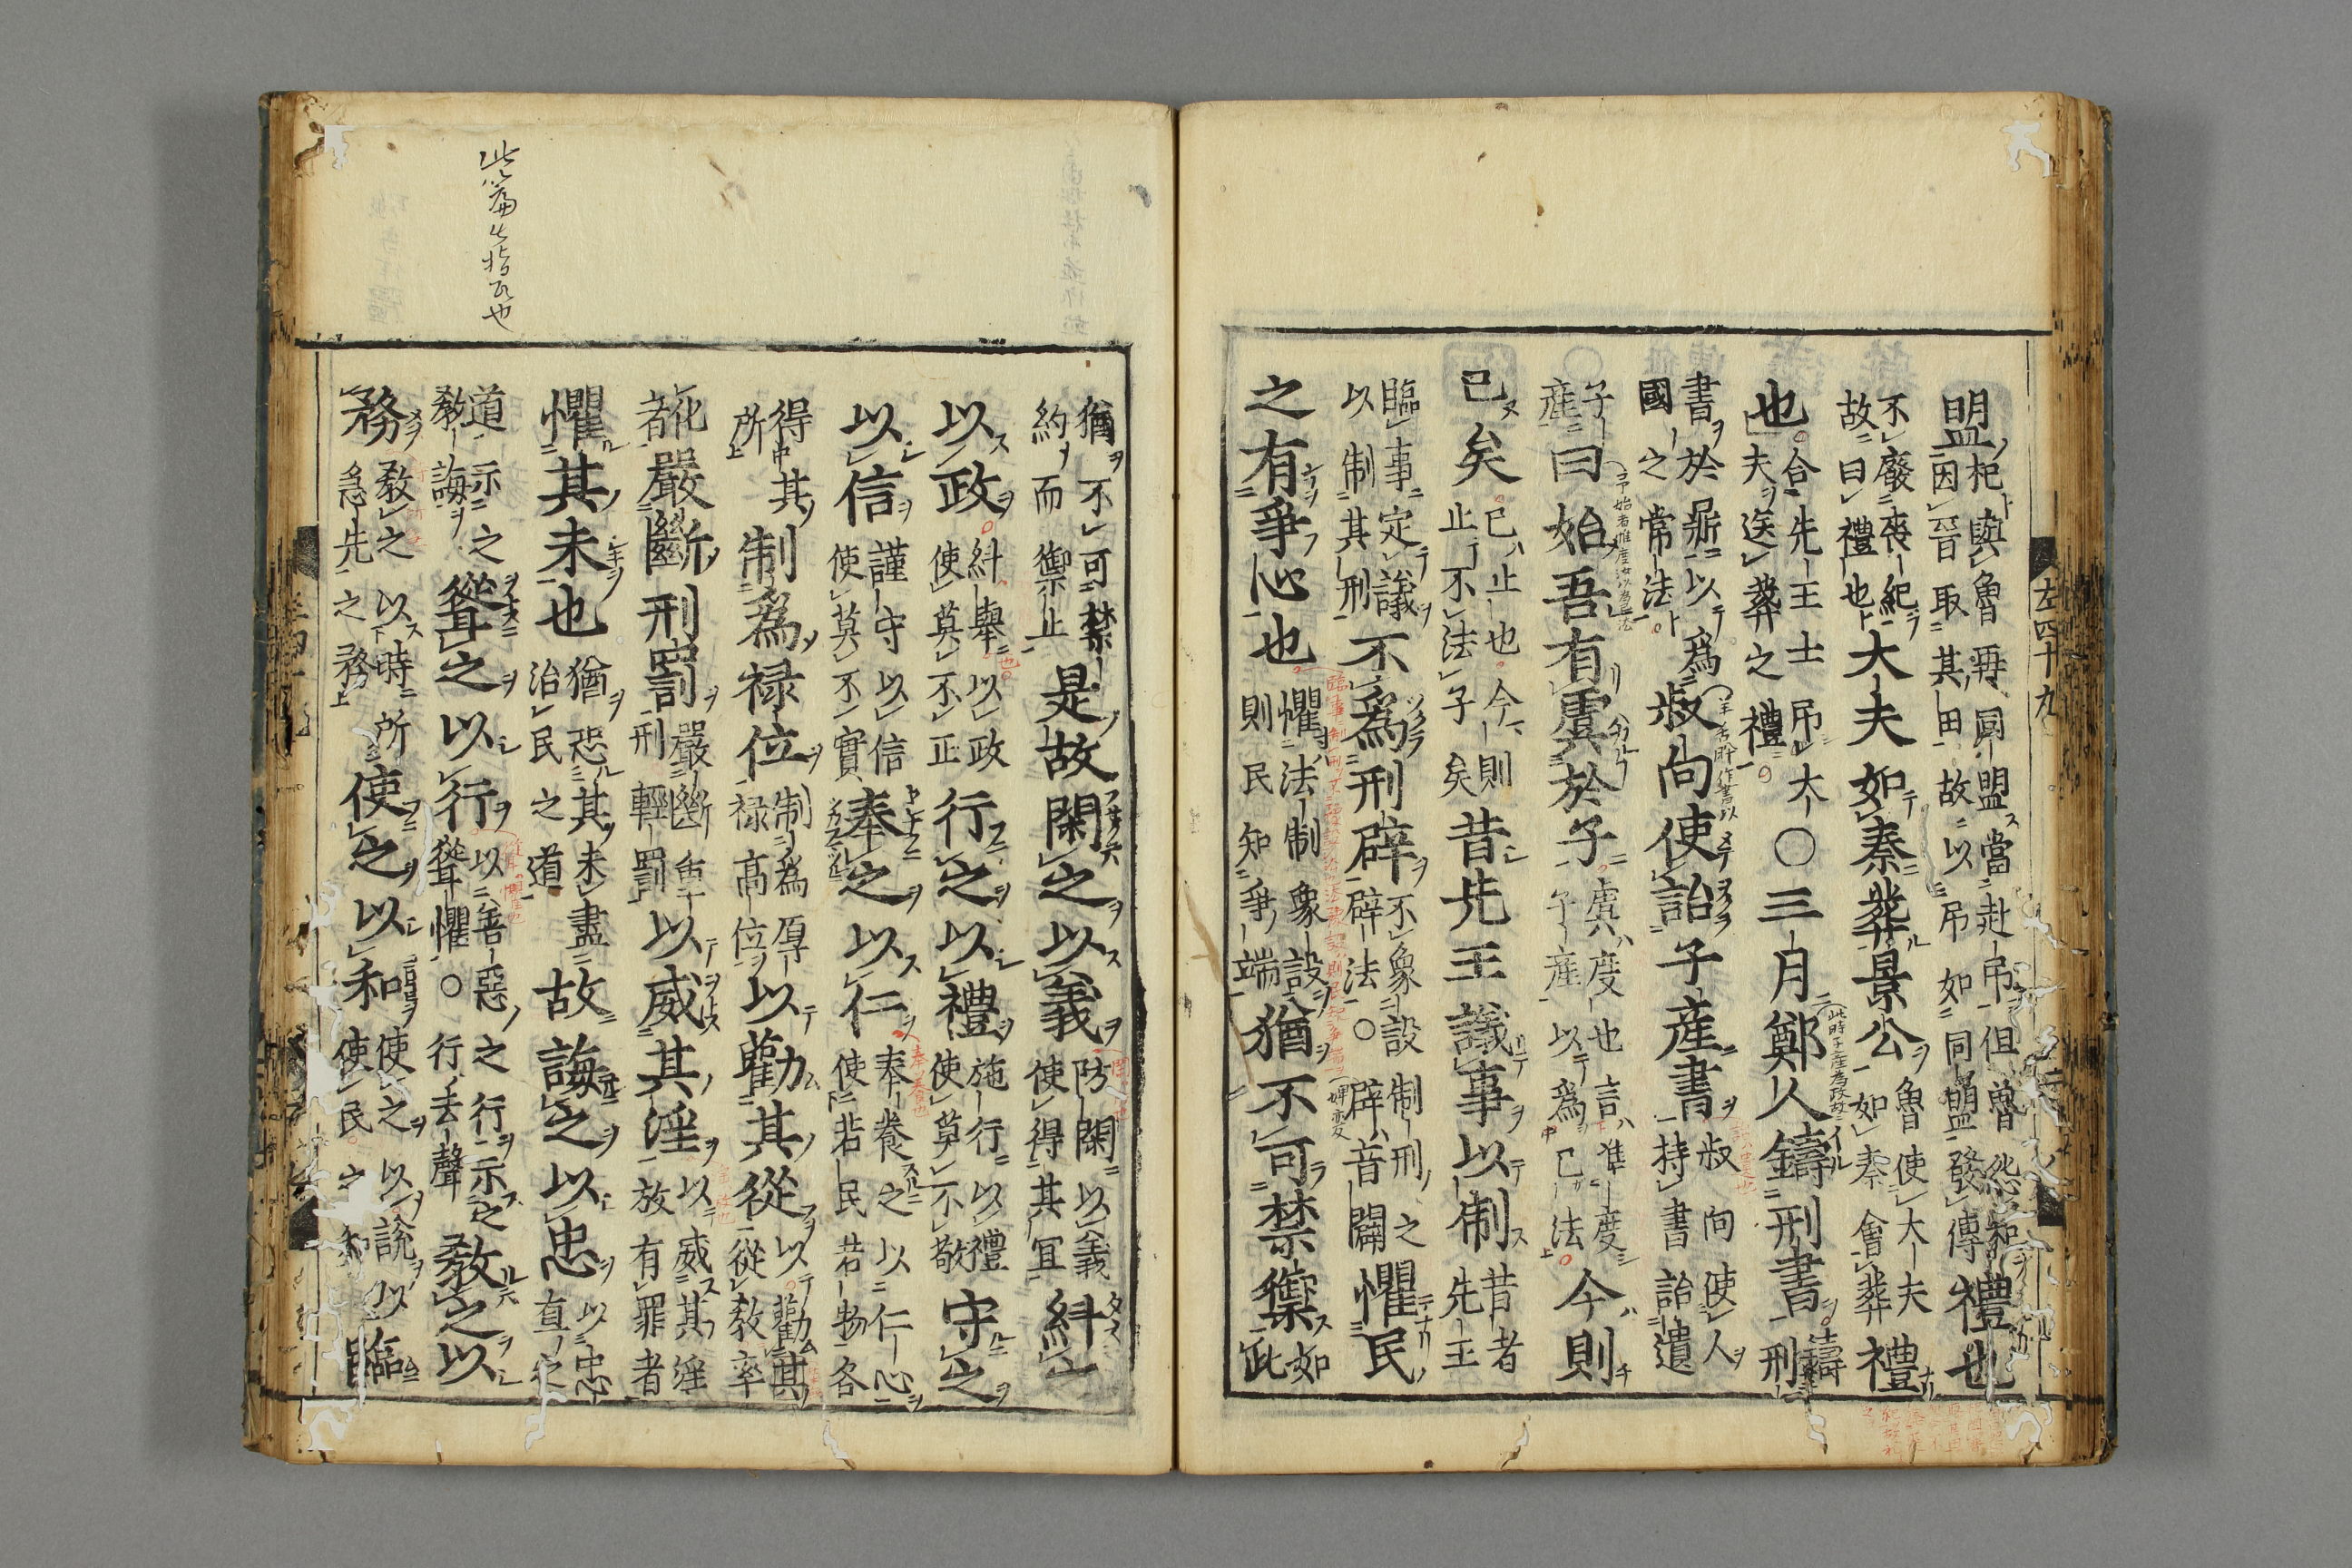 盟杞與魯再同盟當赴吊但魯怨
因晉取其田故以吊如同盟發傳禮也
不廢喪紀
故曰禮也大夫如秦葬景公魯使大夫
如秦會葬禮
也合先王士吊大
夫送葬之禮○三月鄭人鑄刑書鑄
刑
書於鼎以爲
國之常法叔向使詒子產書叔向使人
持書詒遺
子
產曰始吾有虞於子虞度也言準度
子產以爲已法今則
已矣已止也今則
止不法子矣昔先王議事以制昔者
先王
臨事定議
以制其刑不爲刑辟不象設制刑之
辟法○辟音闢懼民
之有爭心也懼法制象設
則民知爭端猶不可禁禦如
此
猶不可禁
約而禦止是故閑之以義防閑以義
使得其宜糾之
以政糾舉以政
使莫不正行之以禮施行以禮
使莫不敬守之
以信謹守以信
使莫不實奉之以仁奉養之以仁心
使若民若物各
得其
所制爲祿位制爲厚
祿高位以勸其從以勸其
從教率
化
者嚴斷刑罰嚴斷重
刑輕罰以威其淫以威其淫
放有罪者
懼其未也猶恐其未盡
治民之道故誨之以忠以忠
直之
道示之
教誨聳之以行以善惡之行示之
聳懼○行去聲教之以
務教之以時所
急先之務使之以和使之以說以
使民之和臨
此篇
也
左四十九